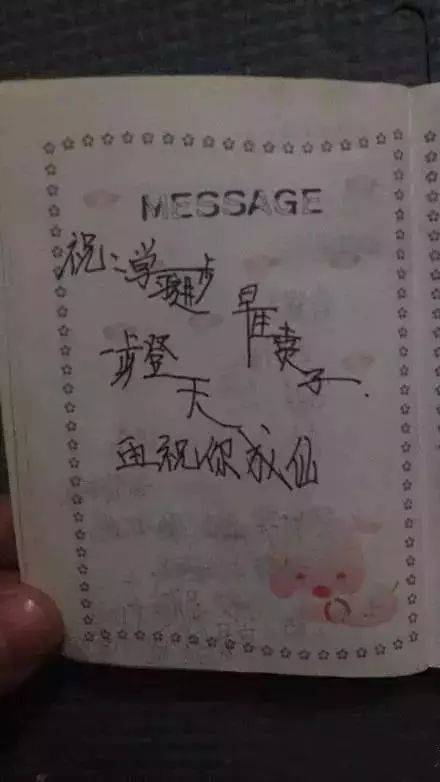 MESSAGE
祝:学习进步
早生贵子.
一步登天
再祝你成仙